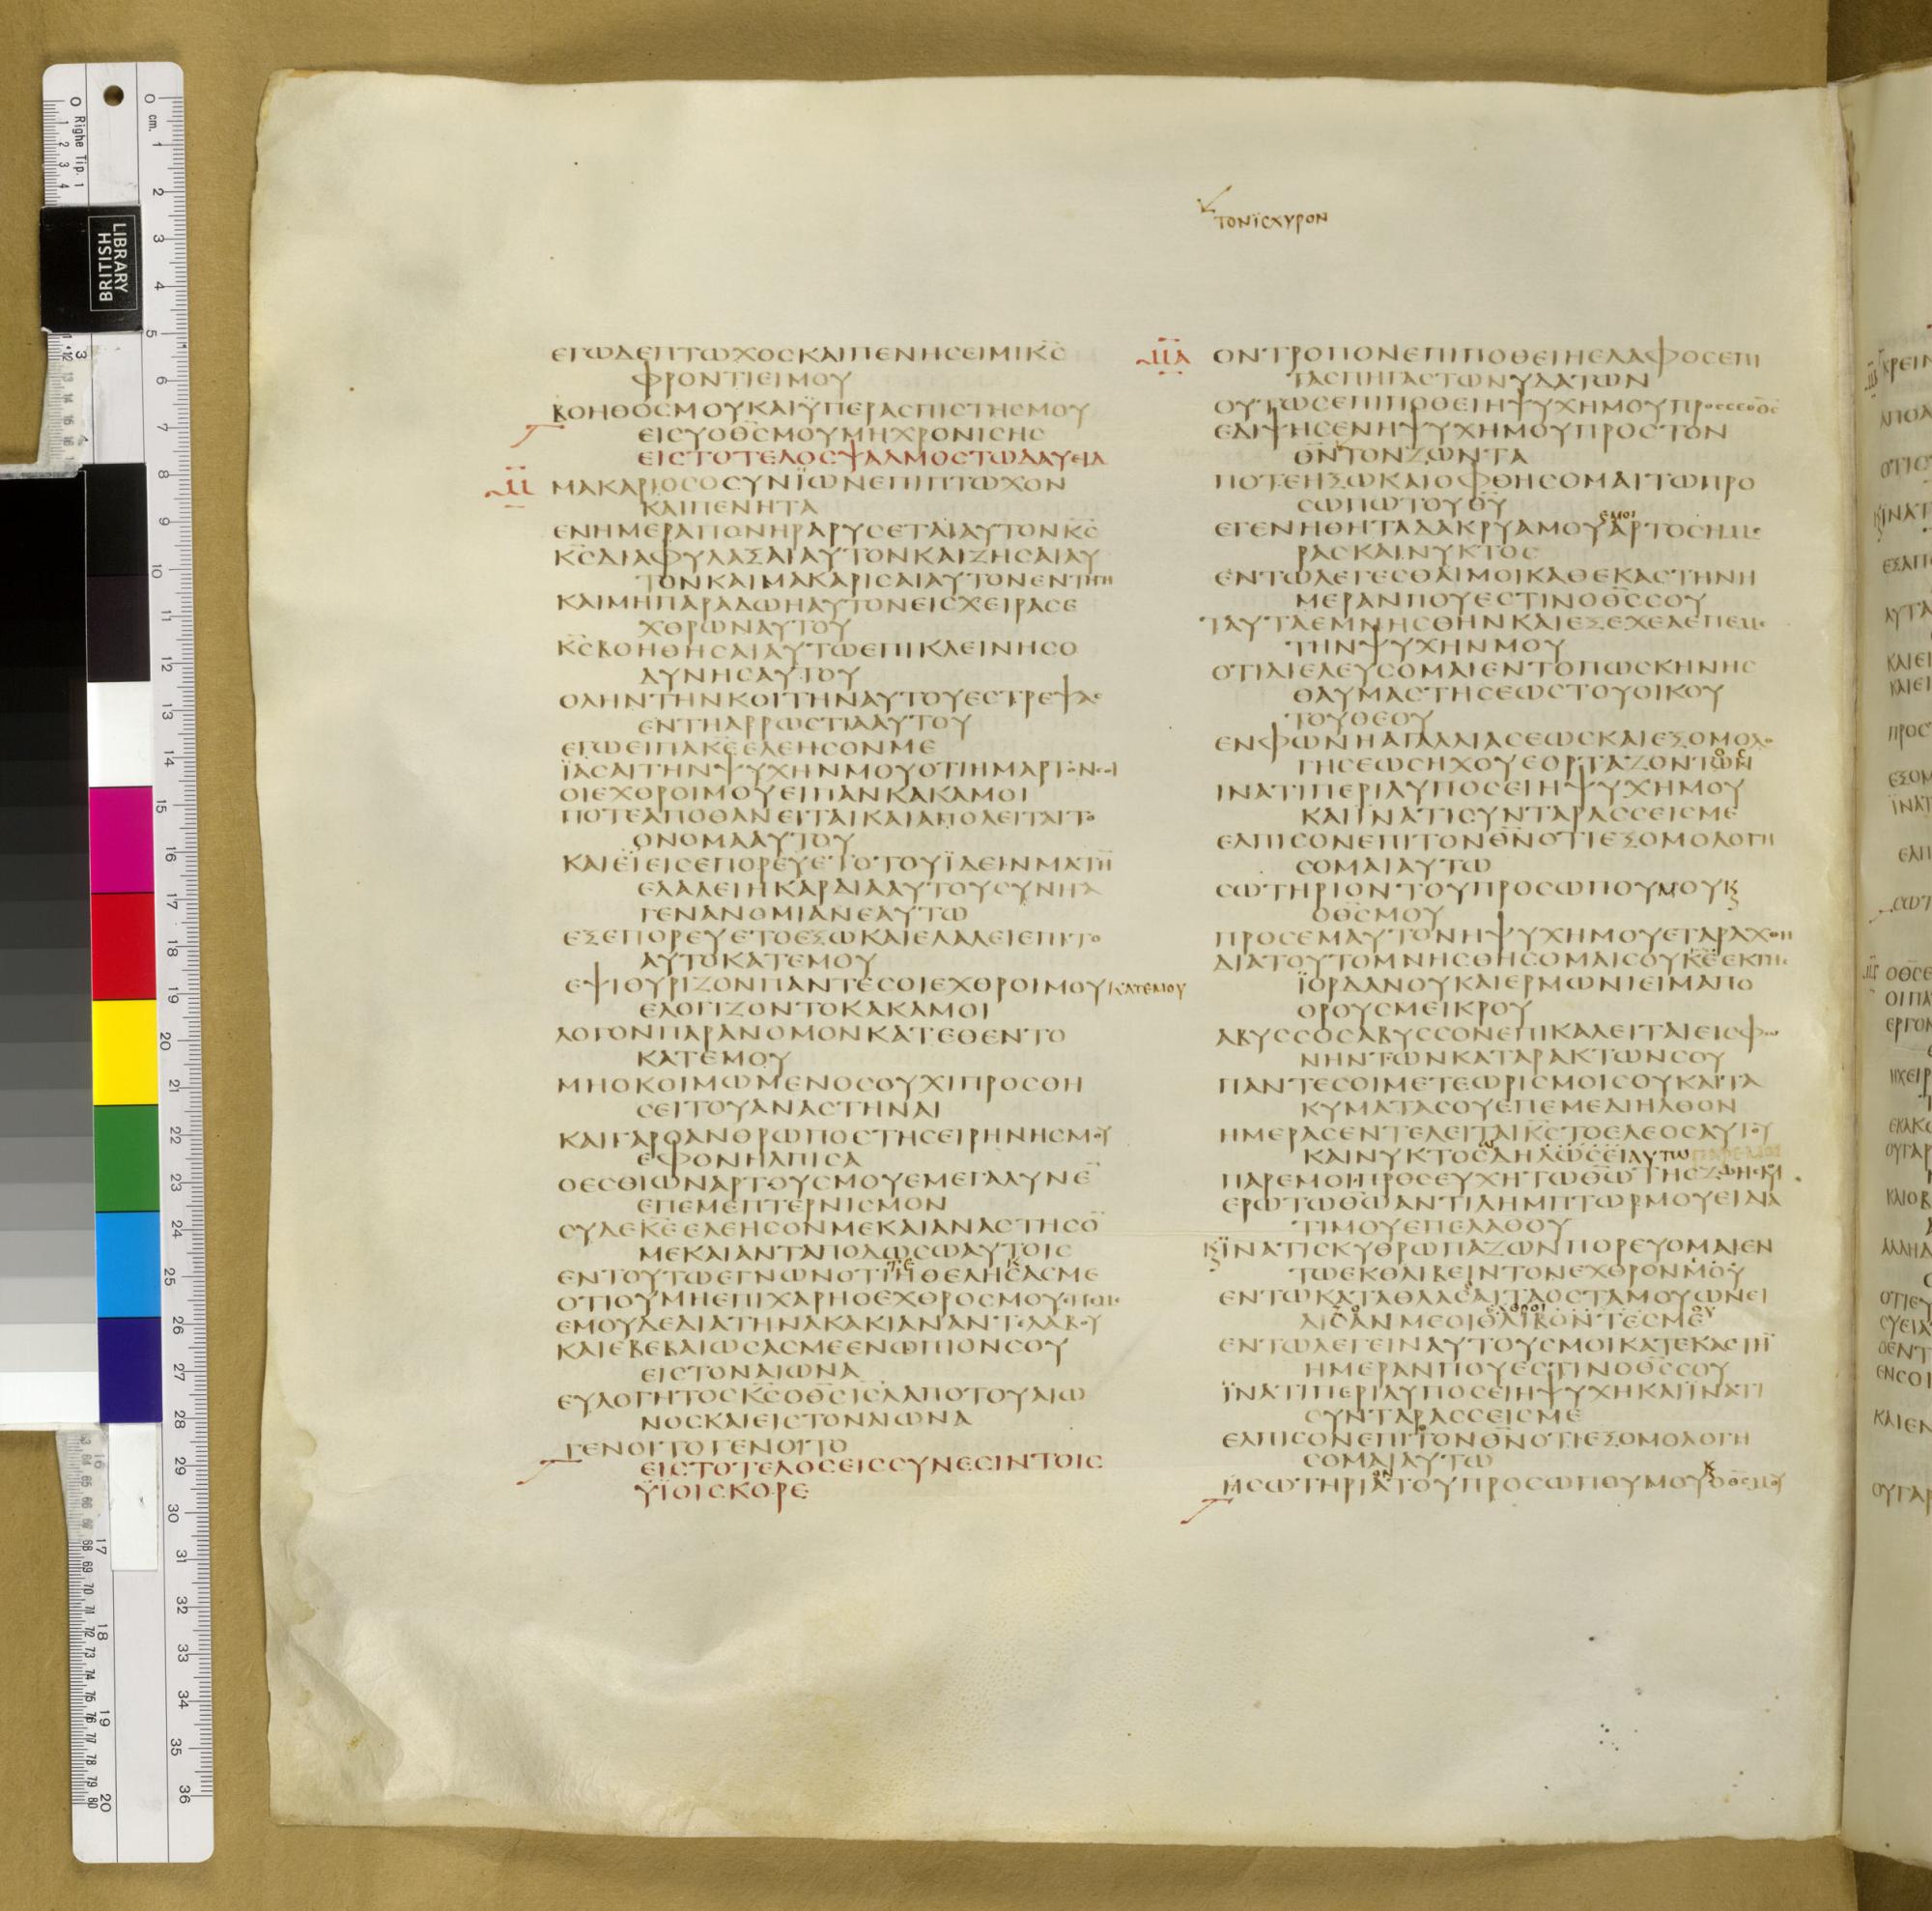 ΤΟΝΪϹΧΥΡΟΝ
ΕΓΩΔΕΠΤΩΧΟϹΚΑΙΠΕΝΗϹΕΙΜΙΚϹ
ΦΡΟΝΤΙΕΙΜΟΥ
ΒΟΗΘΟϹΜΟΥΚΑΙΫΠΕΡΑϹΠΙϹΤΗϹΜΟΥ
ΕΙϹΥΟΘϹΜΟΥΜΗΧΡΟΝΙϹΗϹ
ΕΙϹΤΟΤΕΛΟϹΨΑΛΜΟϹΤΩΔΑΥΕΙΔ
Μ
ΜΑΚΑΡΙΟϹΟϹΥΝΪΩΝΕΠΙΠΤΩΧΟΝ
ΚΑΙΠΕΝΗΤΑ
ΕΝΗΜΕΡΑΠΟΝΗΡΑΡΥϹΕΤΑΙΑΥΤΟΝΚϹ
ΚϹΔΙΑΦΥΛΑΞΑΙΑΥΤΟΝΚΑΙΖΗϹΑΙΑΥ
ΤΟΝΚΑΙΜΑΚΑΡΙϹΑΙΑΥΤΟΝΕΝΤΗΓΗ
ΚΑΙΜΗΠΑΡΑΔΩΗΑΥΤΟΝΕΙϹΧΕΙΡΑϹΕ
ΧΘΡΩΝΑΥΤΟΥ
ΚϹΒΟΗΘΗϹΑΙΑΥΤΩΕΠΙΚΛΕΙΝΗϹΟ
ΔΥΝΗϹΑΥΤΟΥ
ΟΛΗΝΤΗΝΚΟΙΤΗΝΑΥΤΟΥΕϹΤΡΕΨΑϹ
ΕΝΤΗΑΡΡΩϹΤΙΑΑΥΤΟΥ
ΕΓΩΕΙΠΑΚΕΕΛΕΗϹΟΝΜΕ
ΪΑϹΑΙΤΗΝΨΥΧΗΝΜΟΥΟΤΙΗΜΑΡΤΟΝϹΟΙ
ΟΙΕΧΘΡΟΙΜΟΥΕΙΠΑΝΚΑΚΑΜΟΙ
ΠΟΤΕΑΠΟΘΑΝΕΙΤΑΙΚΑΙΑΠΟΛΕΙΤΑΙΤΟ
ΟΝΟΜΑΑΥΤΟΥ
ΚΑΙΕΪΕΙϹΕΠΟΡΕΥΕΤΟΤΟΥΪΔΕΙΝΜΑΤΗ
ΕΛΑΛΕΙΗΚΑΡΔΙΑΑΥΤΟΥϹΥΝΗΓΑ
ΓΕΝΑΝΟΜΙΑΝΕΑΥΤΩ
ΕΞΕΠΟΡΕΥΕΤΟΕΞΩΚΑΙΕΛΑΛΕΙΕΠΙΤΟ
ΑΥΤΟΚΑΤΕΜΟΥ
ΕΨΙΘΥΡΙΖΟΝΠΑΝΤΕϹΟΙΕΧΘΡΟΙΜΟΥΚΑΤΕΜΟΥ
ΕΛΟΓΙΖΟΝΤΟΚΑΚΑΜΟΙ
ΛΟΓΟΝΠΑΡΑΝΟΜΟΝΚΑΤΕΘΕΝΤΟ
ΚΑΤΕΜΟΥ
ΜΗΟΚΟΙΜΩΜΕΝΟϹΟΥΧΙΠΡΟϹΘΗ
ϹΕΙΤΟΥΑΝΑϹΤΗΝΑΙ
ΚΑΙΓΑΡΟΑΝΘΡΩΠΟϹΤΗϹΕΙΡΗΝΗϹΜΟΥ
ΕΦΟΝΗΛΠΙϹΑ
ΟΕϹΘΙΩΝΑΡΤΟΥϹΜΟΥΕΜΕΓΑΛΥΝΕ
ΕΠΕΜΕΠΤΕΡΝΙϹΜΟΝ
ϹΥΔΕΚΕΕΛΕΗϹΟΝΜΕΚΑΙΑΝΑϹΤΗϹΟ
ΜΕΚΑΙΑΝΤΑΠΟΔΩϹΩΑΥΤΟΙϹ
ΕΝΤΟΥΤΩΕΓΝΩΝΟΤΙΤΕΘΕΛΗΚΑϹΜΕ
ΟΤΙΟΥΜΗΕΠΙΧΑΡΗΟΕΧΘΡΟϹΜΟΥΕΠΕΜΕ
ΕΜΟΥΔΕΔΙΑΤΗΝΑΚΑΚΙΑΝΑΝΤΕΛΑΒΟΥ
ΚΑΙΕΒΕΒΑΙΩϹΑϹΜΕΕΝΩΠΙΟΝϹΟΥ
ΕΙϹΤΟΝΑΙΩΝΑ
ΕΥΛΟΓΗΤΟϹΚϹΟΘϹΙϹΛΑΠΟΤΟΥΑΙΩ
ΝΟϹΚΑΙΕΙϹΤΟΝΑΙΩΝΑ
ΓΕΝΟΙΤΟΓΕΝΟΙΤΟ
ΕΙϹΤΟΤΕΛΟϹΕΙϹϹΥΝΕϹΙΝΤΟΙϹ
ΫΪΟΙϹΚΟΡΕ
ΜΑ
ΟΝΤΡΟΠΟΝΕΠΙΠΟΘΕΙΗΕΛΑΦΟϹΕΠΙ
ΤΑϹΠΗΓΑϹΤΩΝΥΔΑΤΩΝ
ΟΥΤΩϹΕΠΙΠΟΘΕΙΗΨΥΧΗΜΟΥΠΡΟϹϹΕΟΘϹ
ΕΔΙΨΗϹΕΝΗΨΥΧΗΜΟΥΠΡΟϹΤΟΝ
ΘΝΤΟΝΖΩΝΤΑ
ΠΟΤΕΗΞΩΚΑΙΟΦΘΗϹΟΜΑΙΤΩΠΡΟ
ϹΩΠΩΤΟΥΘΥ
ΕΓΕΝΗΘΗΤΑΔΑΚΡΥΑΜΟΥΕΜΟΙΑΡΤΟϹΗΜΕ
ΡΑϹΚΑΙΝΥΚΤΟϹ
ΕΝΤΩΛΕΓΕϹΘΑΙΜΟΙΚΑΘΕΚΑϹΤΗΝΗ
ΜΕΡΑΝΠΟΥΕϹΤΙΝΟΘϹϹΟΥ
ΤΑΥΤΑΕΜΝΗϹΘΗΝΚΑΙΕΞΕΧΕΑΕΠΕΜΕ
ΤΗΝΨΥΧΗΝΜΟΥ
ΟΤΙΔΙΕΛΕΥϹΟΜΑΙΕΝΤΟΠΩϹΚΗΝΗϹ
ΘΑΥΜΑϹΤΗϹΕΩϹΤΟΥΟΙΚΟΥ
ΤΟΥΘΕΟΥ
ΕΝΦΩΝΗΑΓΑΛΛΙΑϹΕΩϹΚΑΙΕΞΟΜΟΛΟ
ΓΗϹΕΩϹΗΧΟΥΕΟΡΤΑΖΟΝΤΩΝ
ΙΝΑΤΙΠΕΡΙΛΥΠΟϹΕΙΗΨΥΧΗΜΟΥ
ΚΑΙΪΝΑΤΙϹΥΝΤΑΡΑϹϹΕΙϹΜΕ
ΕΛΠΙϹΟΝΕΠΙΤΟΝΘΝΟΤΙΕΞΟΜΟΛΟΓΗ
ϹΟΜΑΙΑΥΤΩ
ϹΩΤΗΡΙΟΝΤΟΥΠΡΟϹΩΠΟΥΜΟΥΚ
ΟΘϹΜΟΥ
ΠΡΟϹΕΜΑΥΤΟΝΗΨΥΧΗΜΟΥΕΤΑΡΑΧΘΗ
ΔΙΑΤΟΥΤΟΜΝΗϹΘΗϹΟΜΑΙϹΟΥΚΕΕΚΓΗϹ
ΪΟΡΔΑΝΟΥΚΑΙΕΡΜΩΝΙΕΙΜΑΠΟ
ΟΡΟΥϹΜΕΙΚΡΟΥ
ΑΒΥϹϹΟϹΑΒΥϹϹΟΝΕΠΙΚΑΛΕΙΤΑΙΕΙϹΦΩ
ΝΗΝΤΩΝΚΑΤΑΡΑΚΤΩΝϹΟΥ
ΠΑΝΤΕϹΟΙΜΕΤΕΩΡΙϹΜΟΙϹΟΥΚΑΙΤΑ
ΚΥΜΑΤΑϹΟΥΕΠΕΜΕΔΙΗΛΘΟΝ
ΗΜΕΡΑϹΕΝΤΕΛΕΙΤΑΙΚϹΤΟΕΛΕΟϹΑΥΤΟΥ
ΚΑΙΝΥΚΤΟϹΔΗΛΩϹΕΙΑΥΤΩ
ΠΑΡΕΜΟΙΠΡΟϹΕΥΧΗΤΩΘΩΤΗϹΖΩΗϹΜΟΥ
ΕΡΩΤΩΘΩΑΝΤΙΛΗΜΠΤΩΡΜΟΥΕΙΔΙΑ
ΤΙΜΟΥΕΠΕΛΑΘΟΥ
ΚΪΝΑΤΙϹΚΥΘΡΩΠΑΖΩΝΠΟΡΕΥΟΜΑΙΕΝ
ΤΩΕΚΘΛΙΒΕΙΝΤΟΝΕΧΘΡΟΝΜΟΥ
ΕΝΤΩΚΑΤΑΘΛΑϹΑΙΤΑΟϹΤΑΜΟΥΩΝΕΙ
ΔΙϹΑΝΜΕΟΙΘΛΙΒΟΝΤΕϹΜΕ
ΕΝΤΩΛΕΓΕΙΝΑΥΤΟΥϹΜΟΙΚΑΤΕΚΑϹΤΗ
ΗΜΕΡΑΝΠΟΥΕϹΤΙΝΟΘϹϹΟΥ
ΪΝΑΤΙΠΕΡΙΛΥΠΟϹΕΙΗΨΥΧΗΚΑΙΪΝΑΤΙ
ϹΥΝΤΑΡΑϹϹΕΙϹΜΕ
ΕΛΠΙϹΟΝΕΠΙΤΟΝΘΝΟΤΙΕΞΟΜΟΛΟΓΗ
ϹΟΜΑΙΑΥΤΩ
ΗϹΩΤΗΡΙΑΤΟΥΠΡΟϹΩΠΟΥΜΟΥΚΟΘϹΜΟΥ
LIBRARY
BRITISH